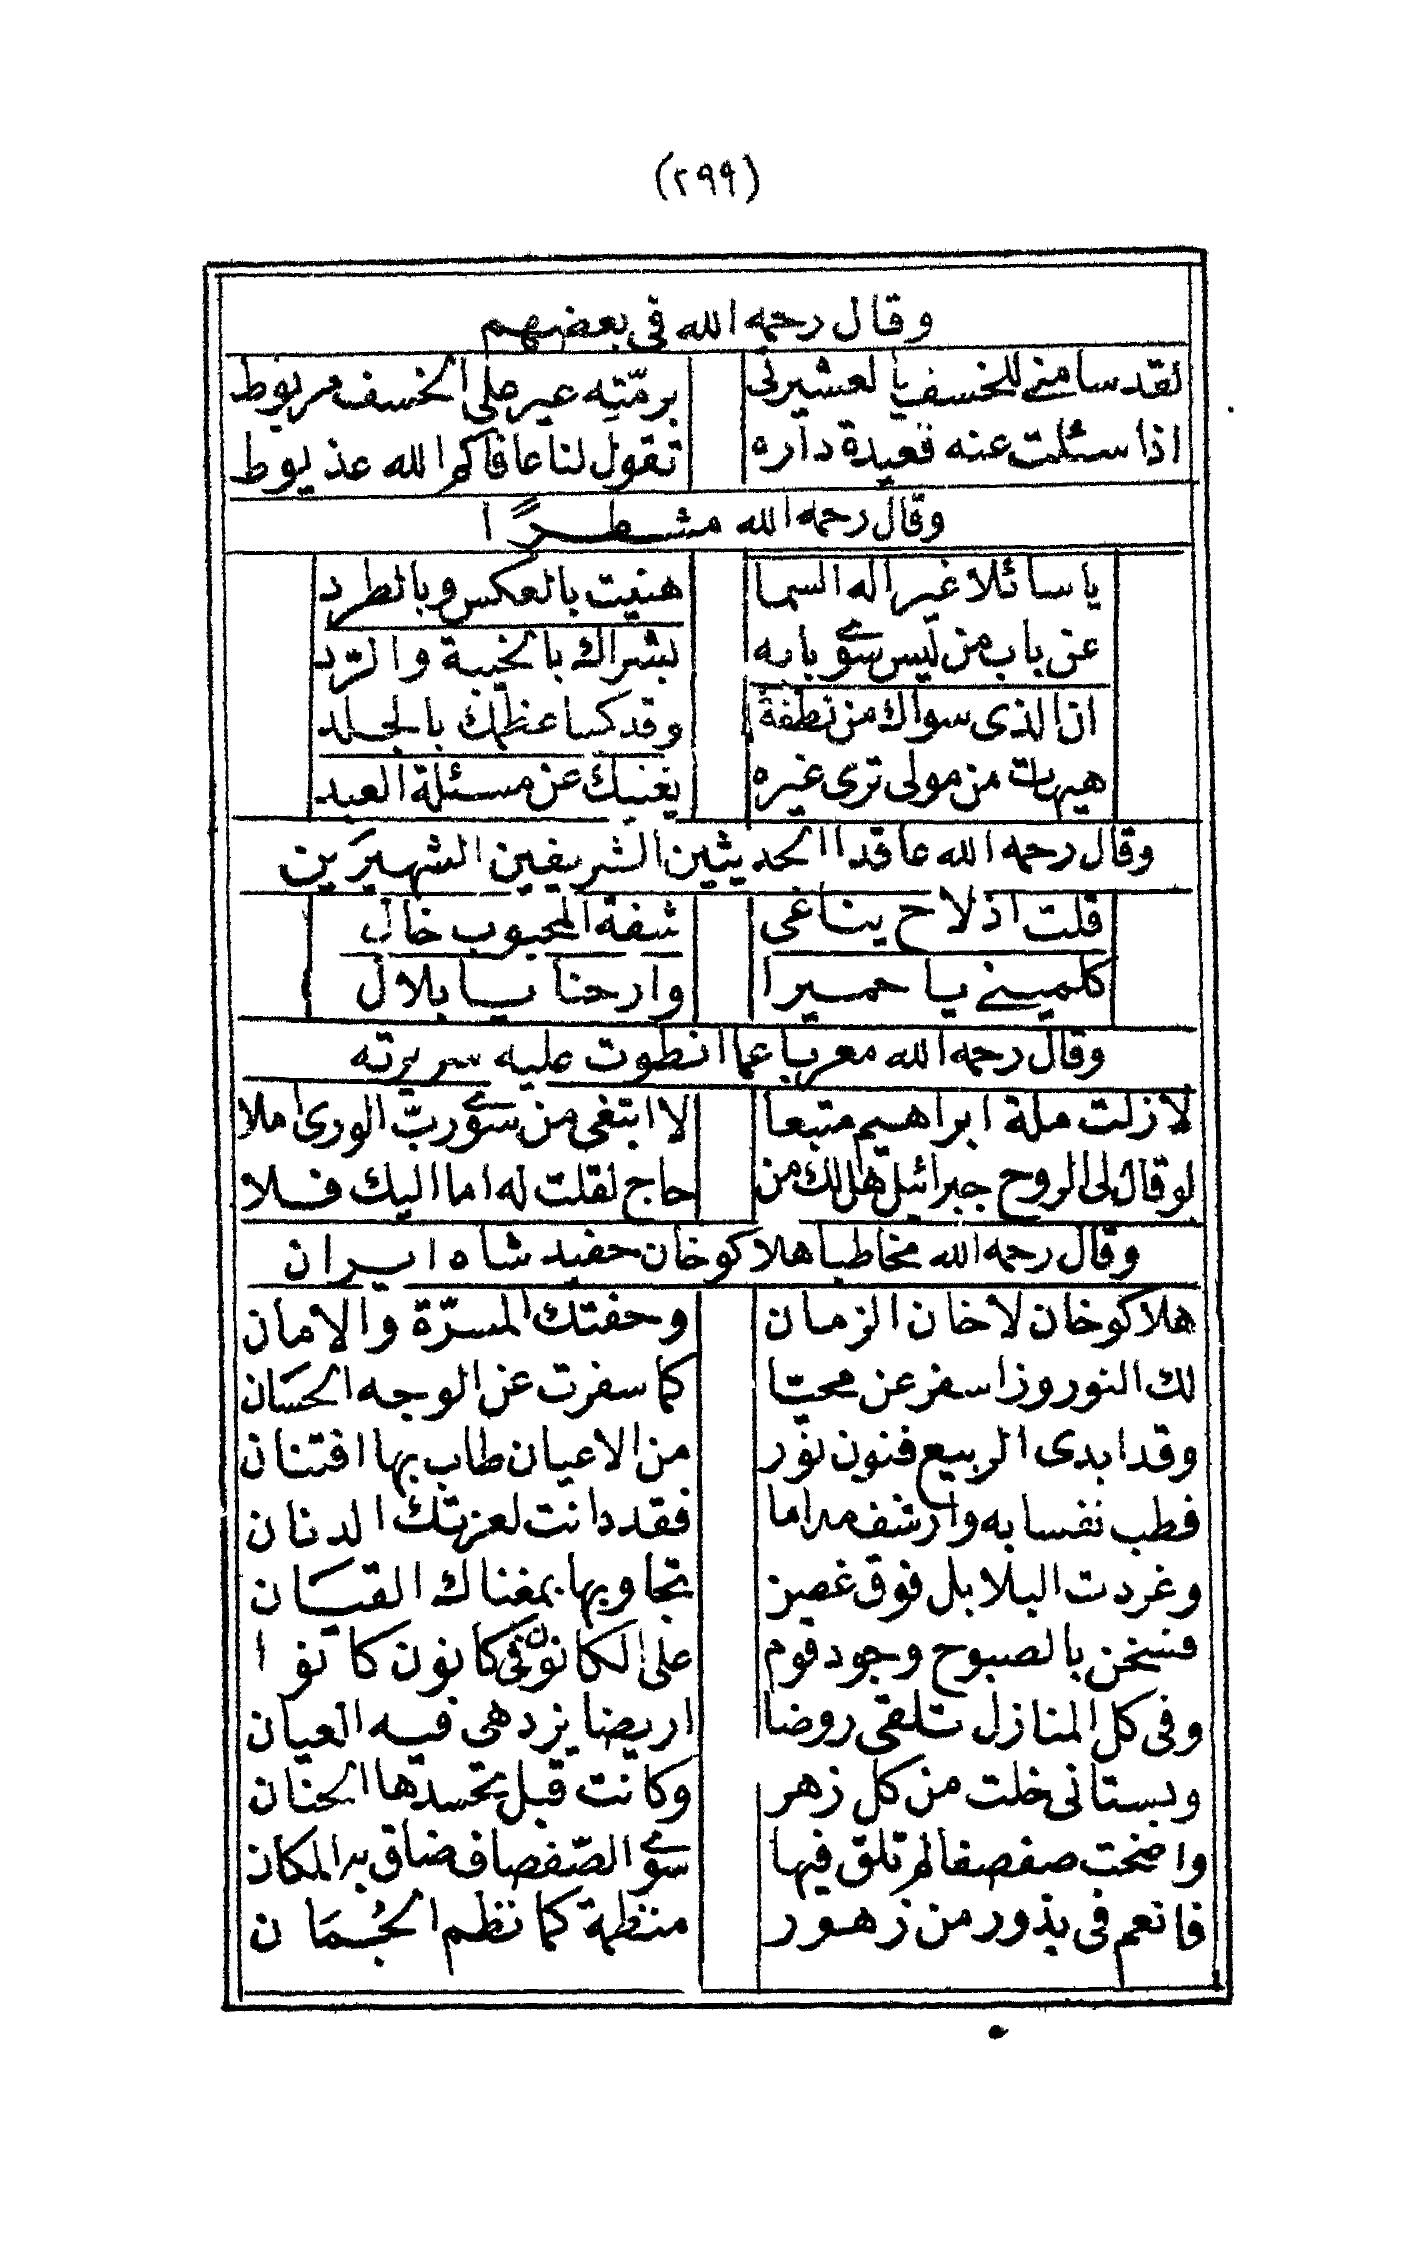 (٢٩٩)
وقال رحمه الله فى بعضهم
لقد سامنى للخسف بالعشيرتى برمّته عير على الخسف مربوط
اذا سئلت عنه قعيدة داره تقول لنا عافاكم الله عذيوط
وقال رحمه الله مشطرًا
يا سائلا غير اله السما هنيت بالعكس وبالطرد
عن باب من ليس سوى بابه بشراك بالخيبة والردّ
ان الذى سواك من نطفة وقد كسا عظمك بالجلد
هيهات من مولى ترى غيره يغنيك عن مسئلة العبد
وقال رحمه الله عاقدا الحديثين الشريفين الشهيرين
قلت اذ لاح يناغى شفة المحبوب خال
كلمينى يا حميرا وارحنا يا بلال
وقال رحمه الله معربا عما انطوت عليه سريرته
لا زلت ملة ابراهيم متبعا لا ابتغى من سوى ربّ الورى املا
لو قال لى الروح جبرائيل هل لك من حاج لقلت له اما اليك فلا
وقال رحمه الله مخاطبا هلاكو خان حفيد شاه ايران
هلاكو خان لا خان الزمان وحفتك المسرّة والامان
لك النوروز اسفر عن محيّا كما سفرت عن الوجه الحسان
وقد ابدى الربيع فنون نور من الاعيان طاب بها افتنان
فطب نفسا به وارشف مداما فقد دانت لعزتك الدنان
وغردت البلابل فوق غصن تجاوبها بمغناك القيان
فسخن بالصبوح وجود قوم على الكانون فى كانون كانوا
وفى كل المنازل تلقى روضا اريضا يزدهى فيه العيان
وبستانى خلت من كل زهر وكانت قبل تحسدها الجنان
واضحت صفصفا لم تلق فيها سوى الصّفصاف ضاق به المكان
فانعم فى بذور من زهور منظمة كما نظم الجُمان